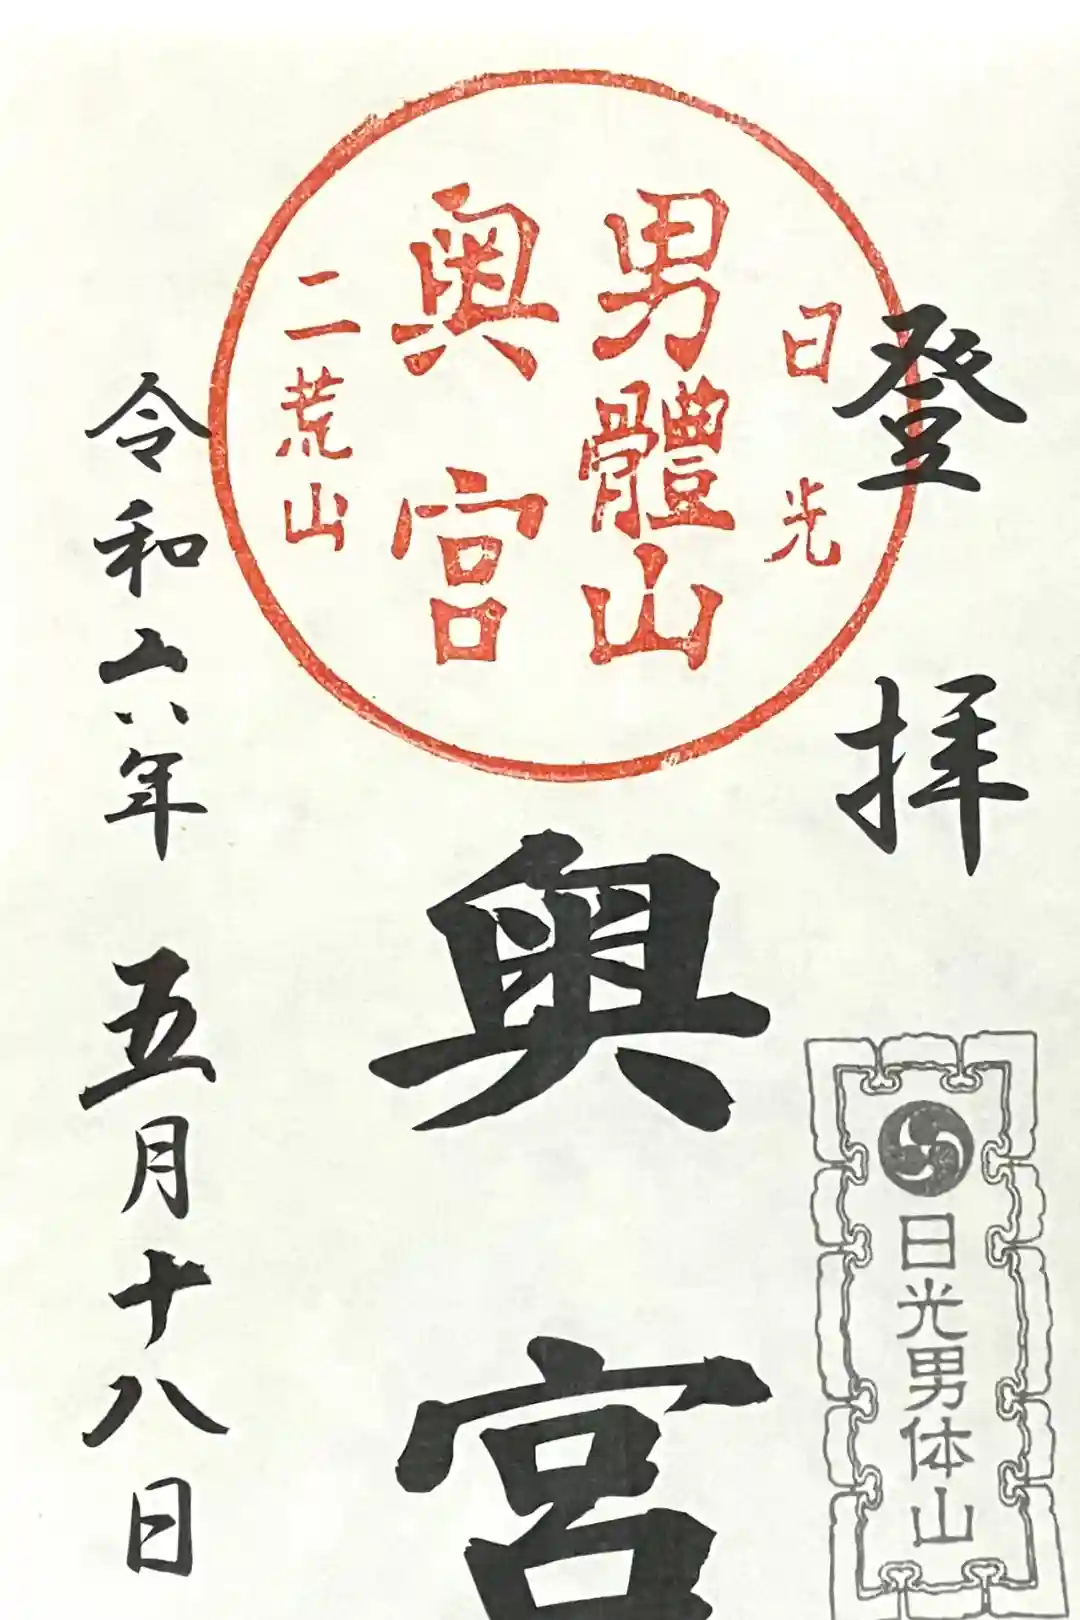 登拝
日光
男體山
奥宮
二荒山
奥宮
日光男体山
令和六年 五月十八日